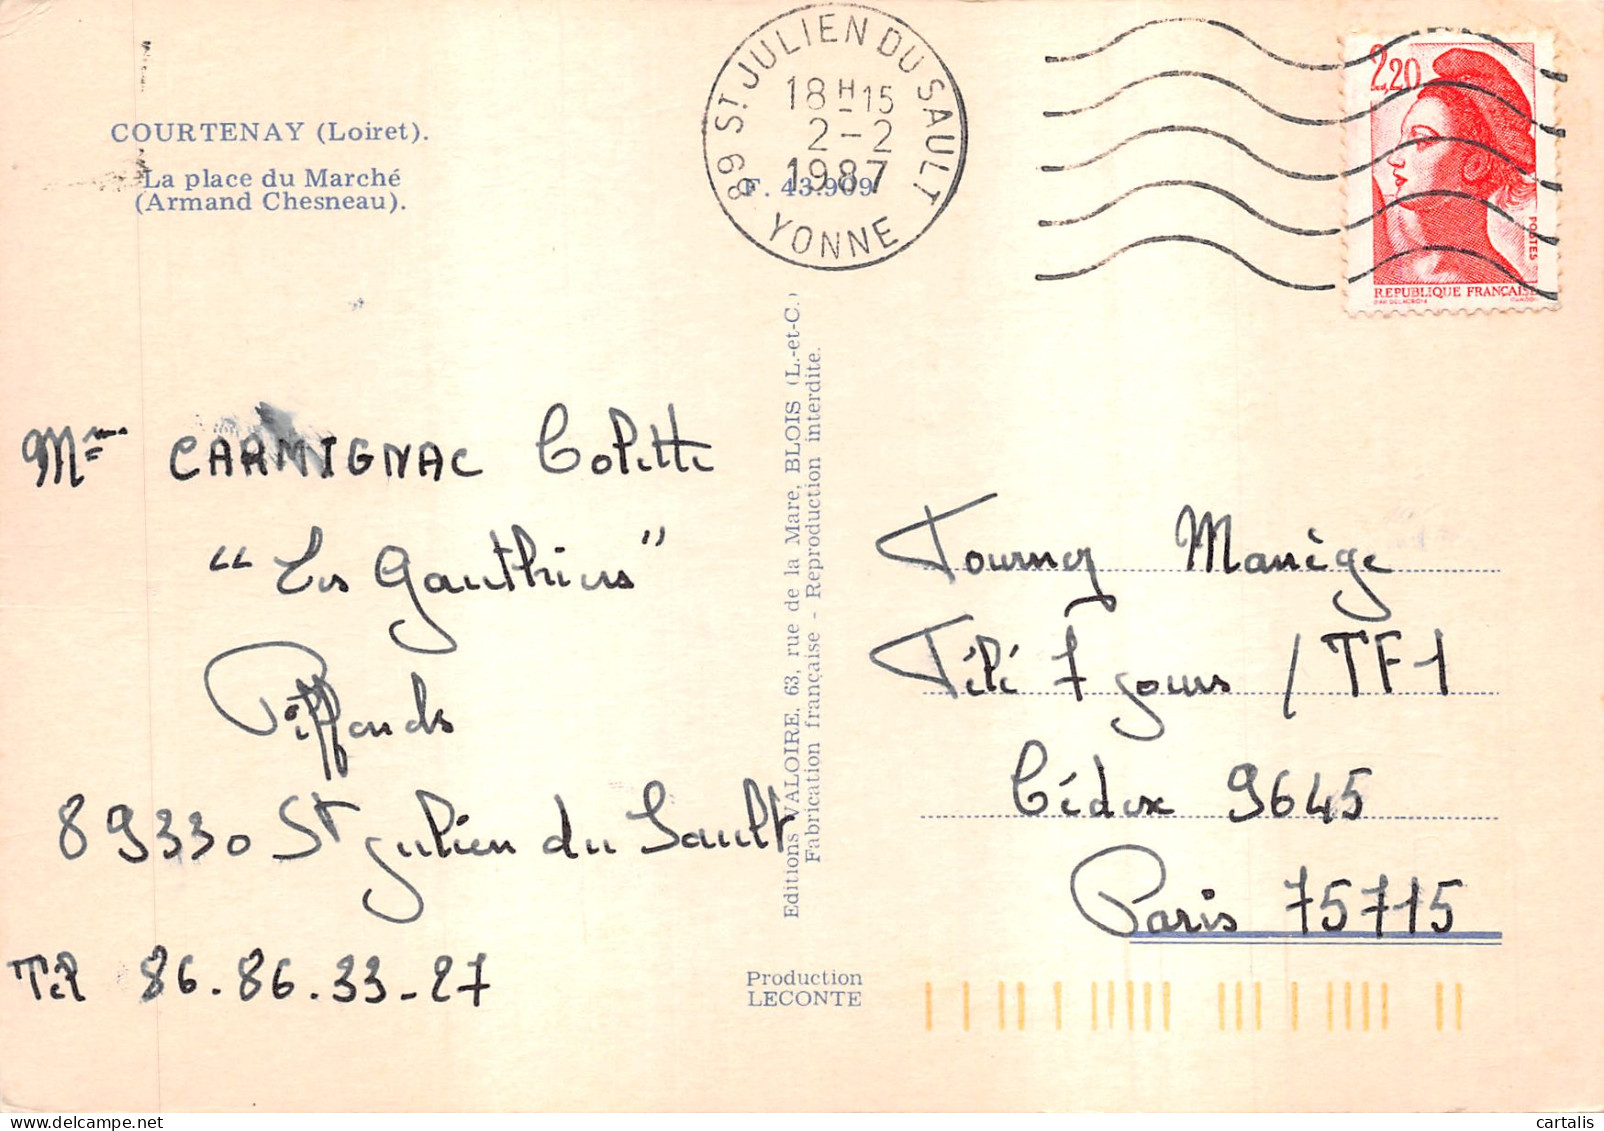 COURTENAY (Loiret).
La place du Marché
(Armand Chesneau).
89 ST JULIEN DU SAULT
18H-15
2-2
1987
YONNE
F. 43.909
2,20
POSTES
REPUBLIQUE FRANÇAISE
Editions VALOIRE, 63, rue de la Mare, BLOIS (L.-et-C.)
Fabrication française - Reproduction interdite.
Mme CARMIGNAC Colette
"Les Gauthiers"
Piffonds
89330 St Julien du Sault
Tél 86.86.33-27
Tournez Manège
Télé 7 jours / TF1
Cédex 9645
Paris 75715
Production
LECONTE
cartalis